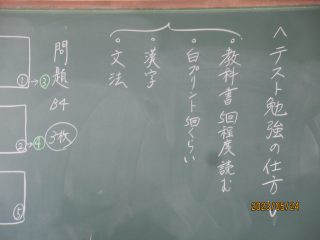 〈テスト勉強の仕方〉
。教科書5回程度読む
。白プリント5回くらい
。漢字
。文法
問題 B4 3枚
①→②
②→④
⑤
2023/05/24